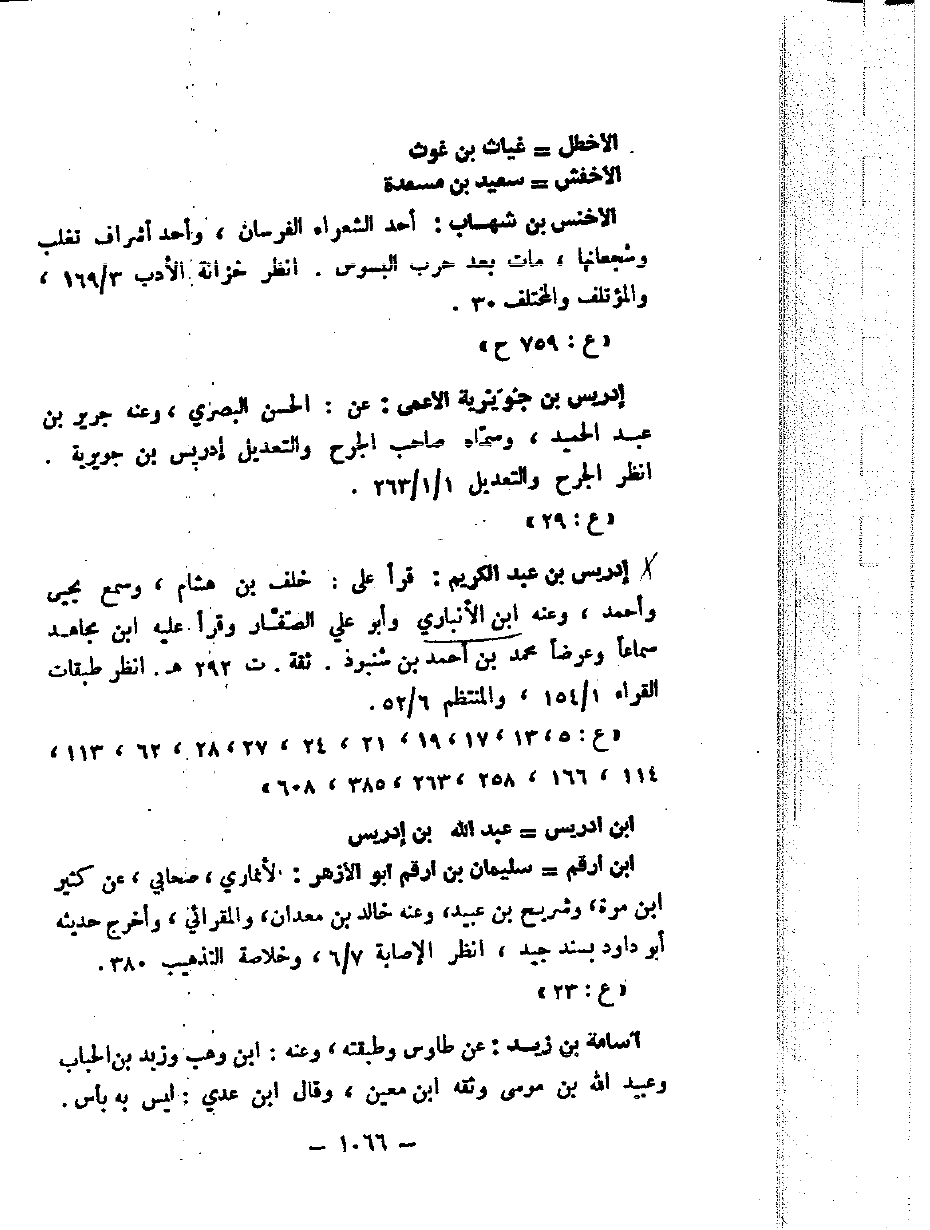 الاخطل = غياث بن غوث
الاخفش = سعيد بن مسعدة
الاخنس بن شهاب : أحد الشعراء الفرسان ، وأحد أشراف تغلب
وشجعانها ، مات بعد حرب البسوس . انظر خزانة الأدب ١٦٩/٣ ،
والمؤتلف والمختلف ٣٠ .
«ع : ٧٥٩ ح»
إدريس بن جُوَيْرية الاعمى : عن : الحسن البصري ، وعنه جرير بن
عبد الحميد ، وسمّاه صاحب الجرح والتعديل إدريس بن جويرية .
انظر الجرح والتعديل ٢٦٣/١/١ .
«ع : ٢٩»
إدريس بن عبد الكريم : قرأ على : خلف بن هشام ، وسمع يحيى
وأحمد ، وعنه ابن الأنباري وأبو علي الصفّار وقرأ عليه ابن مجاهد
سماعاً وعرضاً محمد بن أحمد بن شنبوذ . ثقة . ت ٢٩٢ هـ . انظر طبقات
القراء ١٥٤/١ ، والمنتظم ٥٢/٦ .
«ع : ٥ ، ١٣ ، ١٧ ، ١٩ ، ٢١ ، ٢٤ ، ٢٧ ، ٢٨ ، ٦٢ ، ١١٣ ،
١١٤ ، ١٦٦ ، ٢٥٨ ، ٢٦٣ ، ٣٨٥ ، ٦٠٨»
ابن ادريس = عبد الله بن إدريس
ابن ارقم = سليمان بن ارقم ابو الأزهر : الأنماري ، صحابي ، عن كثير
ابن مرة ، وشريح بن عبيد ، وعنه خالد بن معدان ، والمقرائي ، وأخرج حديثه
أبو داود بسند جيد ، انظر الإصابة ٦/٧ ، وخلاصة التذهيب ٣٨٠ .
«ع : ٢٣»
أسامة بن زيد : عن طاوس وطبقته ، وعنه : ابن وهب وزيد بن الحباب
وعبيد الله بن موسى وثقه ابن معين ، وقال ابن عدي : ليس به بأس .
– ١٠٦٦ –